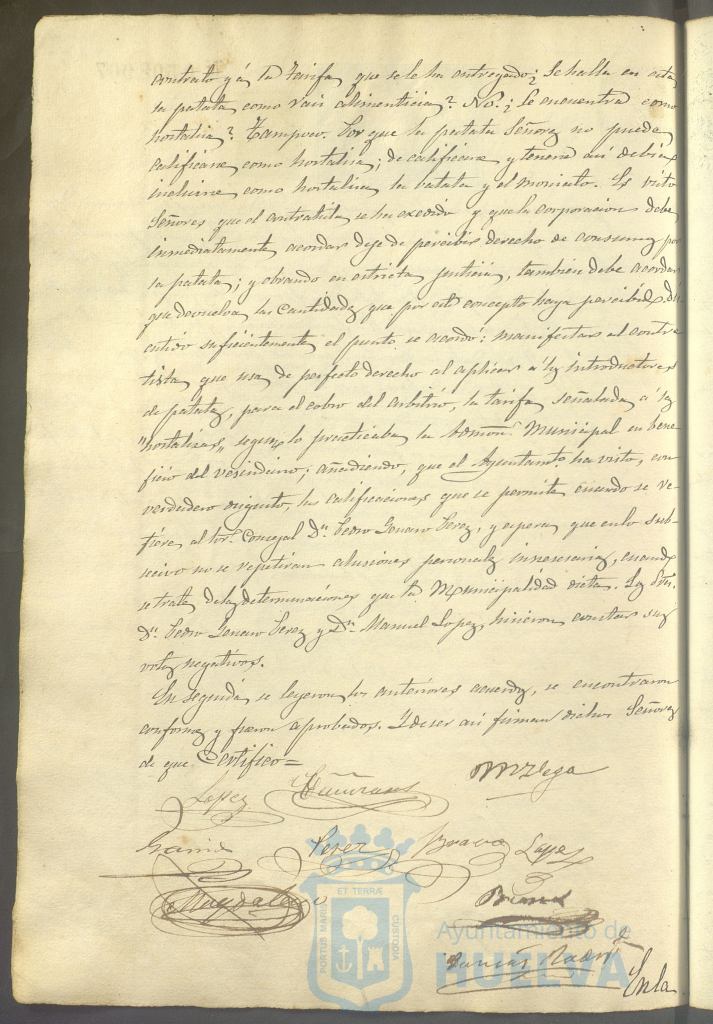 contrato y á la tarifa que se le ha entregado; ¿Se halla en esta
la patata como raiz alimenticia? No. ¿Se encuentra como
hortaliza? Tampoco. Por que la patata Señores no puede
calificarse como hortaliza; de calificarse y tenerse asi debia
incluirse como hortaliza la batata y el moniato. Es visto
Señores que el contratista se ha excedido y que la corporacion debe
inmediatamente acordar deje de percibir derecho de consumo por
la patata; y obrando en estricta justicia, tambien debe acordar
que devuelva las cantidades que por este concepto haya percibido. Dis
cutido suficientemente el punto se acordó: manifestar al contra
tista que usa de perfecto derecho al aplicar á los introductores
de patatas, para el cobro del arbitrio, la tarifa señalada á las
"hortalizas", segun lo practicaba la Admon. Municipal en bene
ficio del vecindario; añadiendo, que el Ayuntamto. ha visto, con
verdadero disgusto, las calificaciones que se permite cuando se re-
fiere al Sr. Concejal Dn. Pedro Genaro Perez, y espera que en lo sub-
cecivo no se repetiran alusiones personales innecesarias, cuando
se trata de las determinaciones que la Municipalidad dicta. Los Sres.
Dn. Pedro Genaro Perez y Dn. Manuel Lopez, hicieron constar sus
votos negativos.
En seguida se leyeron los anteriores acuerdos, se encontraron
conformes y fueron aprobados. Y de ser asi firman dichos Señores
de que Certifico=
Lopez
Garcia Perez Bravo Lopez
Magdaleno
ET TERRÆ
PORTUS MARIS
CUSTODIA
Ayuntamiento de
HUELVA
En la